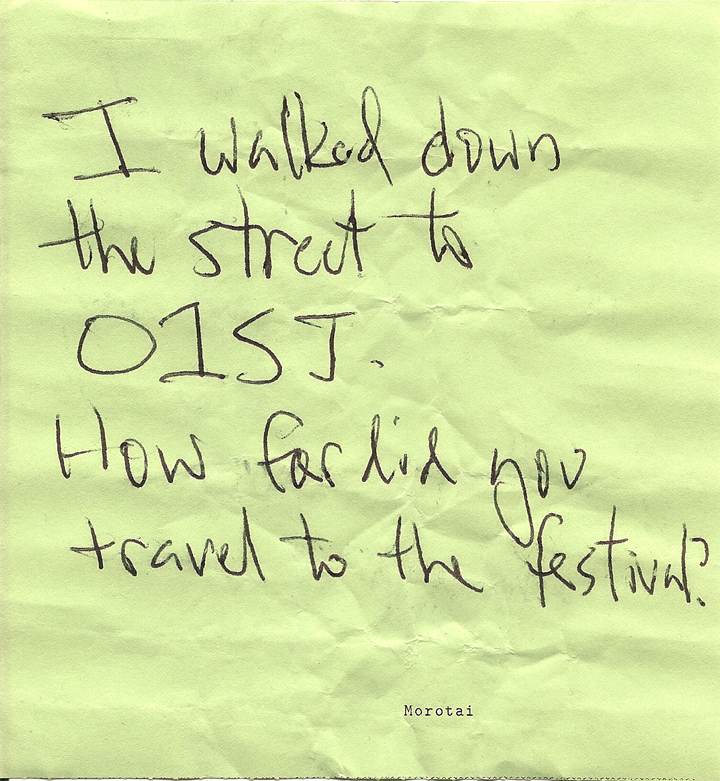 I walked down
the street to
01SJ.
How far did you
travel to the festival?
Morotai